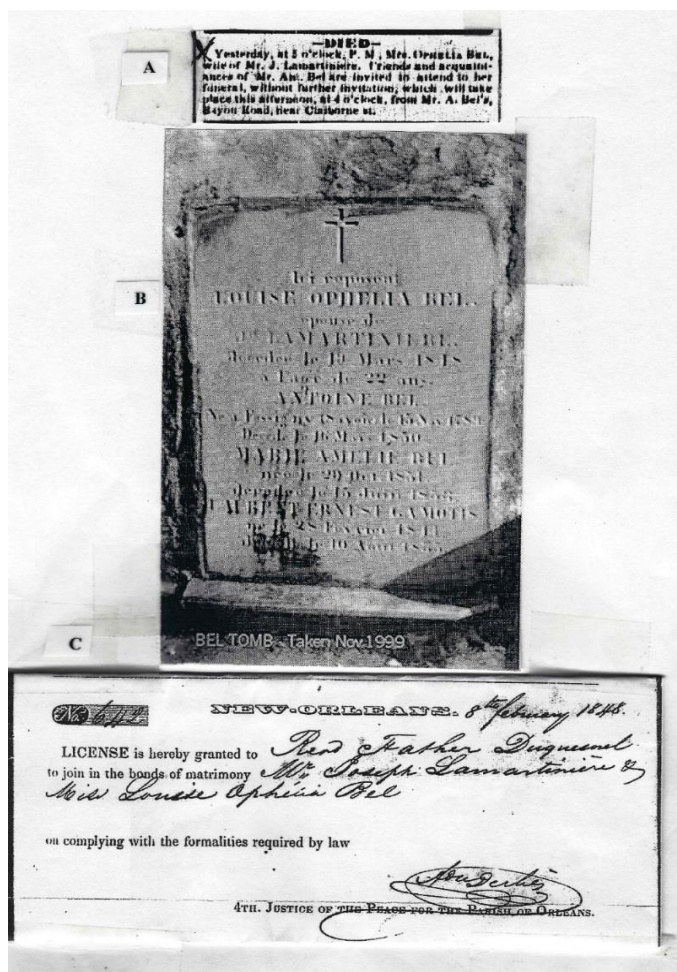 A
—DIED—
Yesterday, at 5 o'clock, P. M., Mrs. Ophelia Bel,
wife of Mr. J. Lamartiniere. Friends and acquaint-
ances of Mr. Ant. Bel are invited to attend to her
funeral, without further invitation, which will take
place this afternoon, at 4 o'clock, from Mr. A. Bel's,
Bayou Road, near Claiborne st.
B
Ici reposent
LOUISE OPHELIA BEL.
epouse de
LAMARTINIERE.
decedee le 19 Mars 1848
a l'age de 22 ans.
ANTOINE BEL
Ne a le 15 Nov
Deced. le 16 Mars 1850
MARIE AMELIE BEL
nee le 29 1851
decedee le 15 Juin
ERNEST GAMOTIS
ne le 28 Fevrier
le 10 Aout
C
BEL TOMB Taken Nov.1999
No. 642 NEW-ORLEANS. 8th february 1848.
LICENSE is hereby granted to Revd Father Duquesnel
to join in the bonds of matrimony Mr. Joseph Lamartinière &
Miss Louise Ophélia Bel
on complying with the formalities required by law
4TH. JUSTICE OF THE PEACE FOR THE PARISH OF ORLEANS.